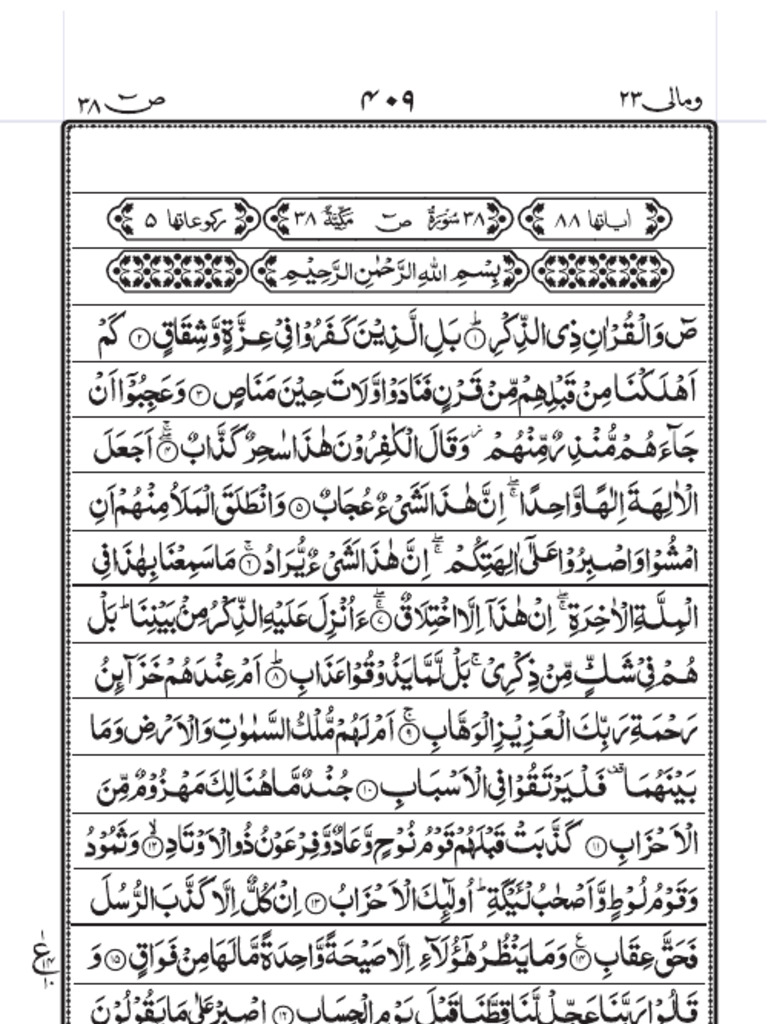 ومالی ٢٣ ۴٠٩ صٓ ٣٨
اٰیاتها ٨٨ ٣٨ سُوْرَةُ صٓ مَكِّيَّةٌ ٣٨ ركوعاتها ۵
بِسْمِ اللّٰهِ الرَّحْمٰنِ الرَّحِيْمِ
صٓ وَالْقُرْاٰنِ ذِی الذِّكْرِ ؕ﴿۱﴾ بَلِ الَّذِيْنَ كَفَرُوْا فِیْ عِزَّةٍ وَّشِقَاقٍ ﴿۲﴾ كَمْ
اَهْلَكْنَا مِنْ قَبْلِهِمْ مِّنْ قَرْنٍ فَنَادَوْا وَّلَاتَ حِيْنَ مَنَاصٍ ﴿۳﴾ وَعَجِبُوْۤا اَنْ
جَآءَهُمْ مُّنْذِرٌ مِّنْهُمْ ؗ وَقَالَ الْكٰفِرُوْنَ هٰذَا سٰحِرٌ كَذَّابٌ ۖۚ﴿۴﴾ اَجَعَلَ
الْاٰلِهَةَ اِلٰهًا وَّاحِدًا ۖۚ اِنَّ هٰذَا لَشَیْءٌ عُجَابٌ ﴿۵﴾ وَانْطَلَقَ الْمَلَاُ مِنْهُمْ اَنِ
امْشُوْا وَاصْبِرُوْا عَلٰۤی اٰلِهَتِكُمْ ۖۚ اِنَّ هٰذَا لَشَیْءٌ يُّرَادُ ۖۚ﴿۶﴾ مَا سَمِعْنَا بِهٰذَا فِی
الْمِلَّةِ الْاٰخِرَةِ ۖۚ اِنْ هٰذَاۤ اِلَّا اخْتِلَاقٌ ۖۚ﴿۷﴾ ءَاُنْزِلَ عَلَيْهِ الذِّكْرُ مِنْۢ بَيْنِنَا ؕ بَلْ
هُمْ فِیْ شَكٍّ مِّنْ ذِكْرِیْ ۚ بَلْ لَّمَّا يَذُوْقُوْا عَذَابِ ؕ﴿۸﴾ اَمْ عِنْدَهُمْ خَزَآئِنُ
رَحْمَةِ رَبِّكَ الْعَزِيْزِ الْوَهَّابِ ۚ﴿۹﴾ اَمْ لَهُمْ مُّلْكُ السَّمٰوٰتِ وَالْاَرْضِ وَمَا
بَيْنَهُمَا ۫ فَلْيَرْتَقُوْا فِی الْاَسْبَابِ ﴿۱۰﴾ جُنْدٌ مَّا هُنَالِكَ مَهْزُوْمٌ مِّنَ
الْاَحْزَابِ ﴿۱۱﴾ كَذَّبَتْ قَبْلَهُمْ قَوْمُ نُوْحٍ وَّعَادٌ وَّفِرْعَوْنُ ذُو الْاَوْتَادِ ۙ﴿۱۲﴾ وَثَمُوْدُ
وَقَوْمُ لُوْطٍ وَّاَصْحٰبُ لْئَيْكَةِ ؕ اُولٰٓئِكَ الْاَحْزَابُ ﴿۱۳﴾ اِنْ كُلٌّ اِلَّا كَذَّبَ الرُّسُلَ
فَحَقَّ عِقَابِ ۧ﴿۱۴﴾ وَمَا يَنْظُرُ هٰۤؤُلَآءِ اِلَّا صَيْحَةً وَّاحِدَةً مَّا لَهَا مِنْ فَوَاقٍ ﴿۱۵﴾ وَ
ع ۱ ۱۴ ۱۰
قَالُوْا رَبَّنَا عَجِّلْ لَّنَا قِطَّنَا قَبْلَ يَوْمِ الْحِسَابِ ﴿۱۶﴾ اِصْبِرْ عَلٰی مَا يَقُوْلُوْنَ